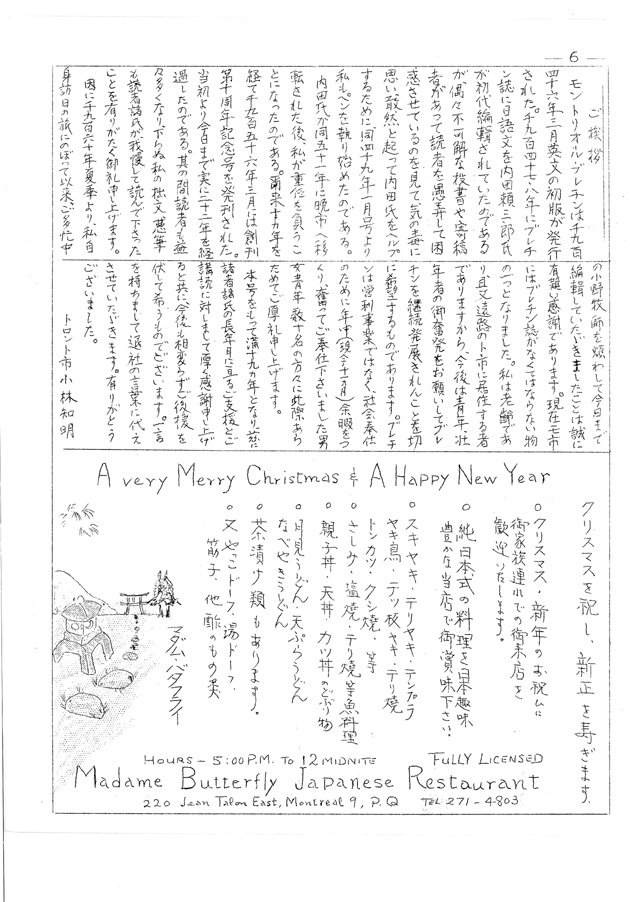 6
ご挨拶
モントリオル・ブレチンは千九百
四十六年三月英文の初版が発行
された。千九百四十七・八年にブレチ
ン誌に日語文を内田頼三郎氏
が初代編輯されていたのである
が、偶々不可解な投書や寄稿
者があって読者を愚弄して困
惑させているのを見て気の毒に
思い敢然と起って内田氏をヘルプ
するために同四十九年一月号より
私もペンを執り始めたのである。
内田氏が同五十一年に晩市へ移
転された後、私が重任を負うこ
とになったのである。爾来十九年を
経て千九百五十六年三月には創刊
第十周年記念号を発刊された。
当初より今日まで実に二十二年を経
過したのである。其の間読者も益
々多くなり下らぬ私の拙文悪筆
も読者諸氏が我慢して読んで下さった
ことを有りがたく御礼申し上げます。
因に千九百六十年夏季より、私自
身訪日の旅にのぼって以来、ご多忙中
の小野牧師を煩わして今日まで
編輯していたゞきましたことは誠に
有難い感謝であります。現在モ市
にはブレチン誌がなくてはならない物
の一つとなりました。私は老齢であ
り且又遠路のト市に居住する者
でありますから、今後は青年、壮
年者の御奮発をお願いしてブレ
チンを継続発展されんことを切
に希望するものであります。ブレチ
ンは営利事業ではなく、社会奉仕
のために年中(現今十一ヵ月)余暇をつ
くり、奮ってご奉仕下さいました男
女青年数十名の方々に此際あら
ためてご厚礼申し上げます。
本号をもって満十九ヵ年となり茲に
読者諸氏の長年月に亘るご支援とご
購読に対しまして厚く感謝申し上げ
ると共に今後も相変らずご後援を
伏して希うものでございます。一言
を持ちまして退社の言葉に代え
させていたゞきます。有りがとう
ございました。
トロント市 小林知明
A very Merry Christmas & A Happy New Year
クリスマスを祝し、新正を寿ぎます。
○クリスマス・新年のお祝ひに
御家族連れでの御来店を
歓迎いたします。
○純日本式の料理を日本趣味
豊かな当店で御賞味下さい。
○スキヤキ・テリヤキ・テンプラ
ヤキ鳥・テッ板ヤキ・テリ焼
トンカツ・クシ焼・等
○さしみ・塩焼・テリ焼等魚料理
○親子丼・天丼・カツ丼のどんぶり物
○月見うどん・天ぷらうどん
なべやきうどん
○茶漬け類もあります。
○又やっこドーフ、湯ドーフ・
筋子、他酢のもの類
マダム・バタフライ
HOURS – 5:00 P.M. TO 12 MIDNITE
FULLY LICENSED
Madame Butterfly Japanese Restaurant
220 Jean Talon East, Montreal 9, P.Q
TEL 271-4803